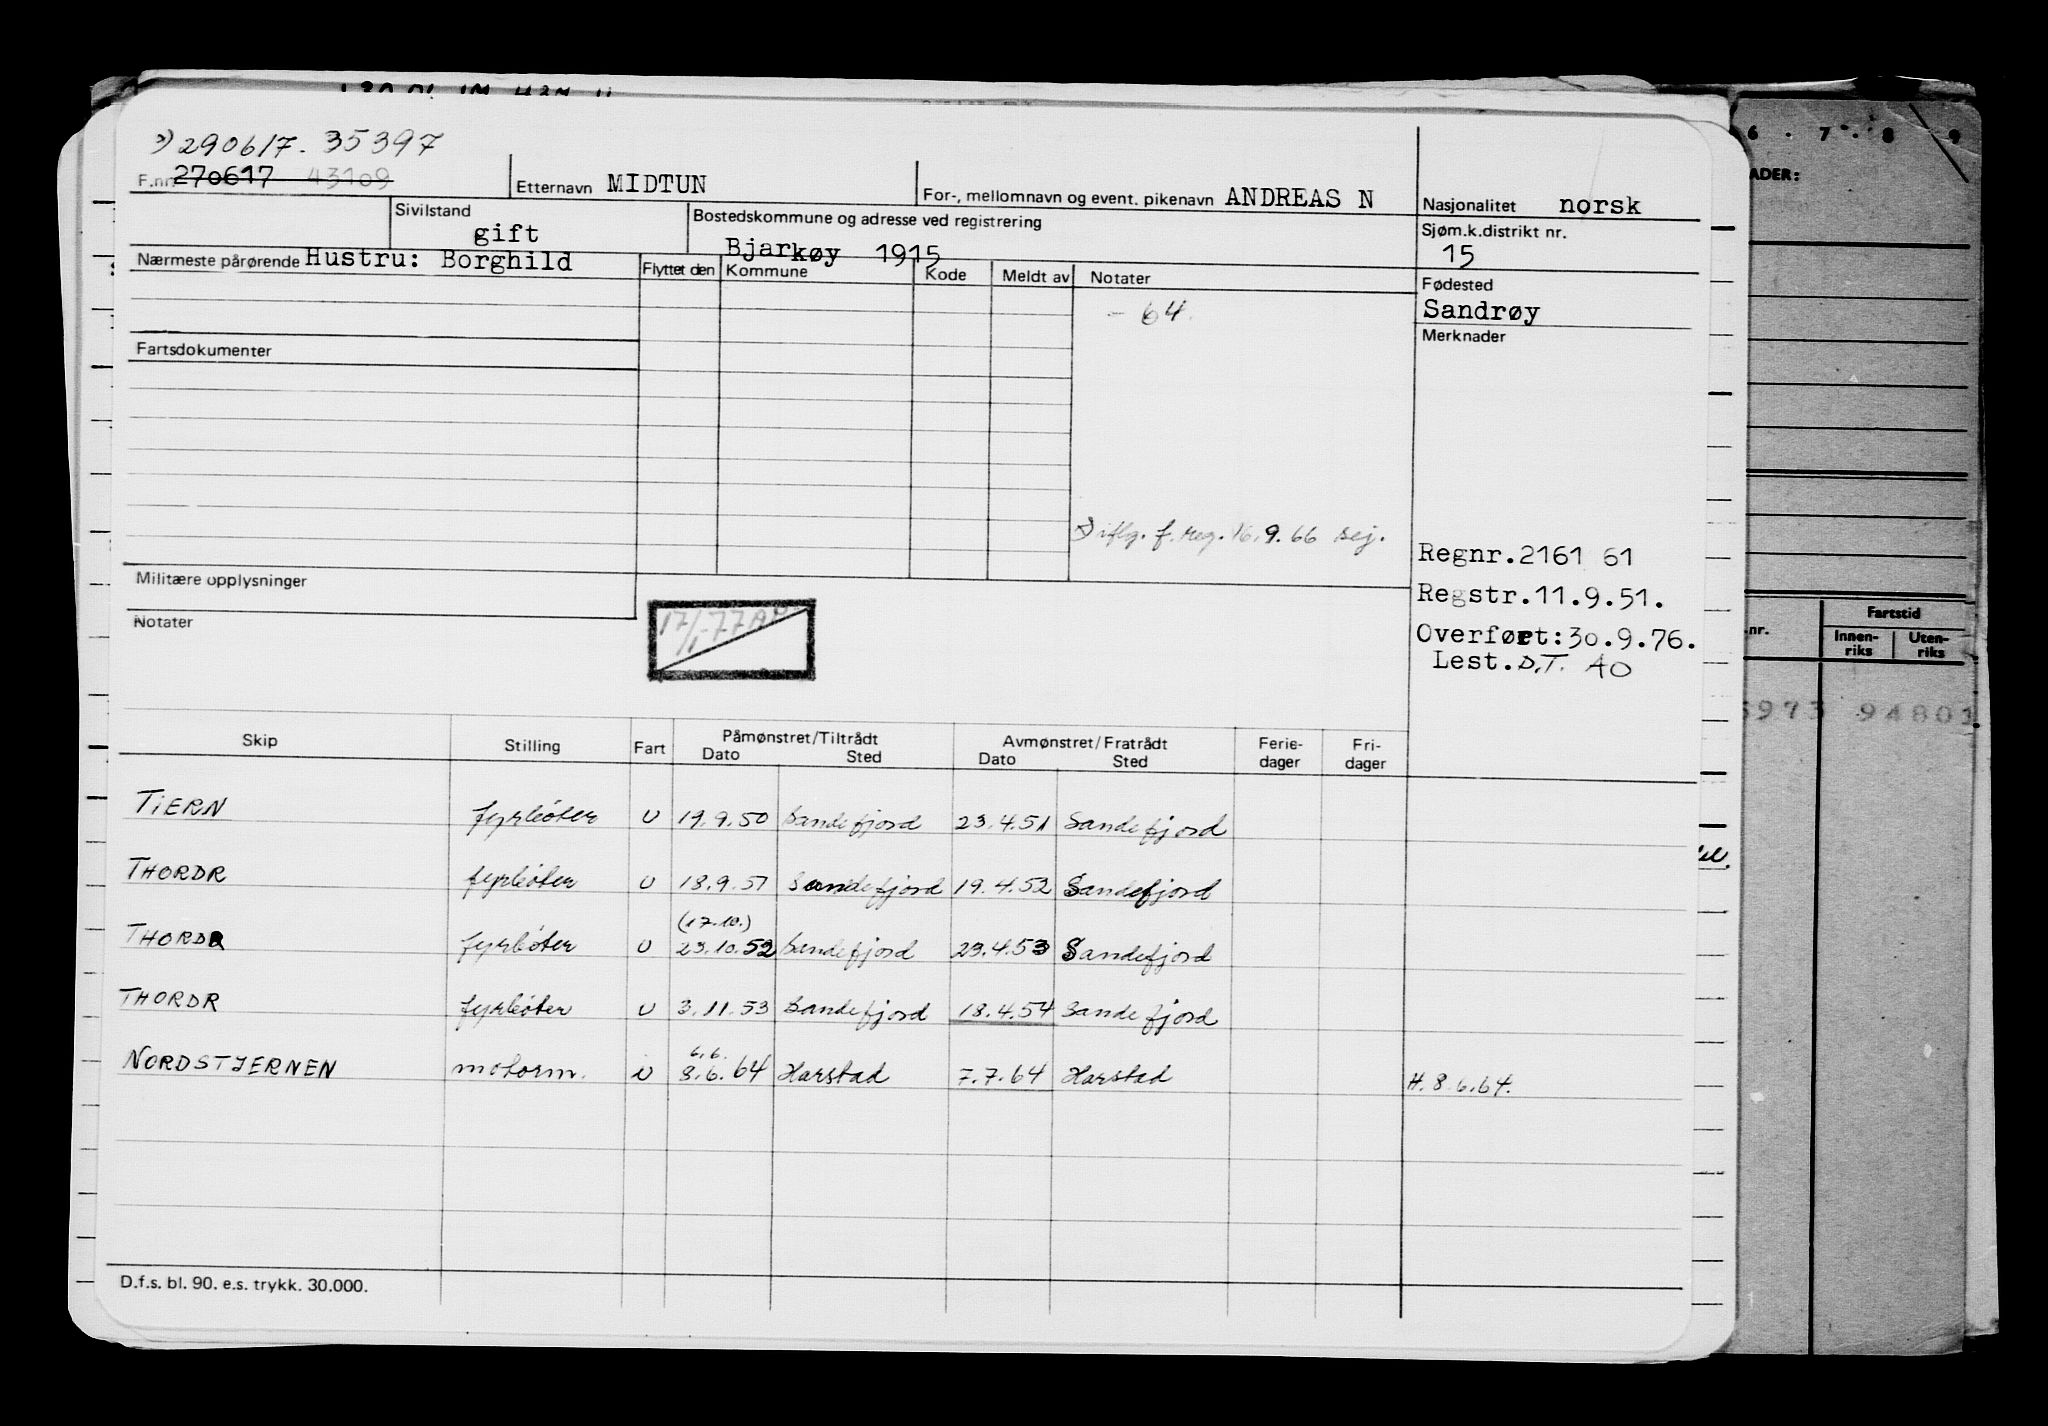 ×) 290617. 35397
F.nr. 270617 43109 Etternavn MIDTUN For-, mellomnavn og event. pikenavn ANDREAS N Nasjonalitet norsk
Sivilstand gift Bostedskommune og adresse ved registrering Bjarkøy 1915 Sjøm.k.distrikt nr. 15
Nærmeste pårørende Hustru: Borghild Flyttet den Kommune Kode Meldt av Notater Fødested
- 64. Sandrøy
Merknader
Fartsdokumenter
×) iflg. f. reg. 16.9.66 sej.
Regnr. 2161 61
Militære opplysninger
Regstr. 11.9.51.
Notater
17/1-77
Overført: 30.9.76.
Lest. D.T. AO
Skip Stilling Fart Påmønstret/Tiltrådt Dato Sted Avmønstret/Fratrådt Dato Sted Ferie-dager Fri-dager
TIERN fyrbøter U 19.9.50 Sandefjord 23.4.51 Sandefjord
THORDR fyrbøter U 18.9.51 Sandefjord 19.4.52 Sandefjord
(17.10.)
THORDR fyrbøter U 23.10.52 Sandefjord 23.4.53 Sandefjord
THORDR fyrbøter U 3.11.53 Sandefjord 18.4.54 Sandefjord
6.6.
NORDSTJERNEN motorm. i 8.6.64 Harstad 7.7.64 Harstad H. 8.6.64.
D.f.s. bl. 90. e.s. trykk. 30.000.
6 . 7 . 8 9
ADER:
.nr. Fartstid
Innen-riks Uten-riks
5973 94801